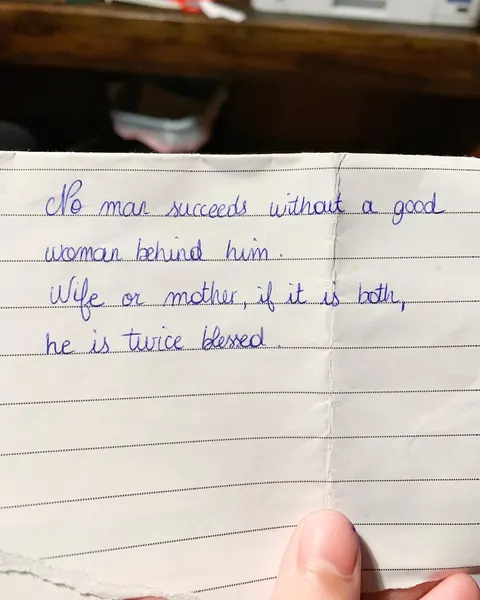 No man succeeds without a good
woman behind him.
Wife or mother, if it is both,
he is twice blessed.